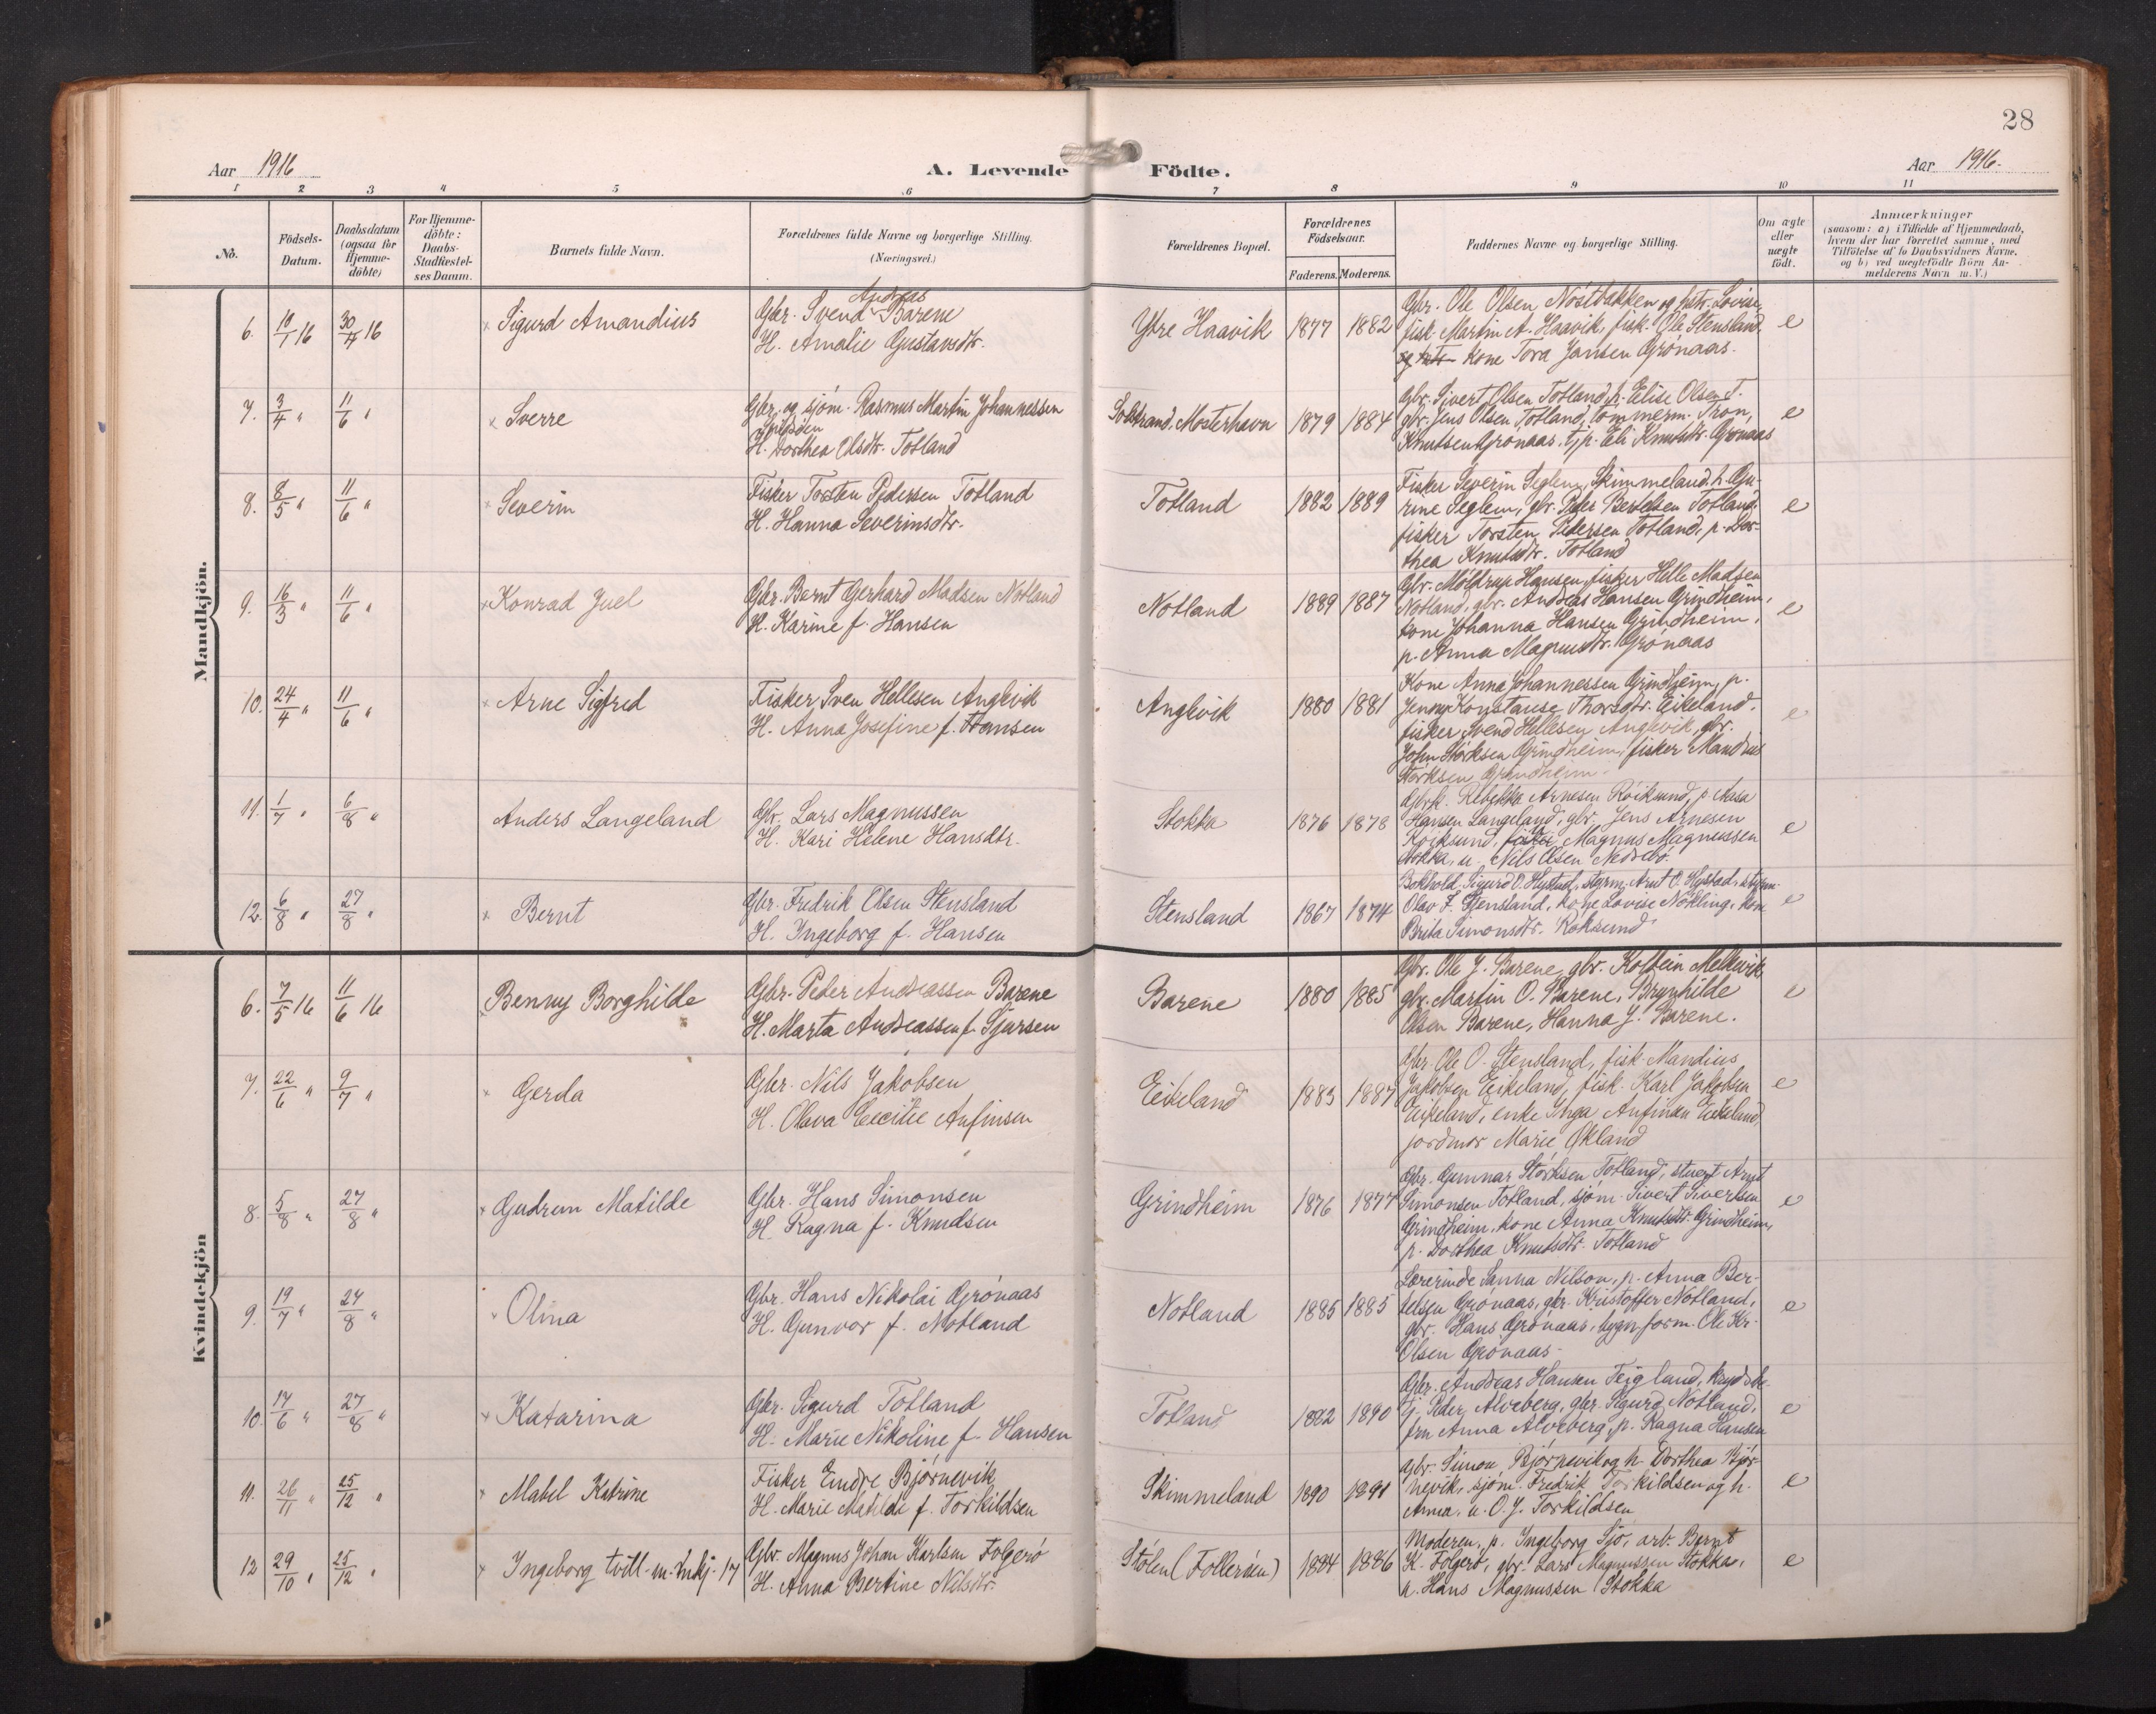 28
Aar 1916
A. Levende Födte.
Aar 1916.
1 2 3 4 5 6 7 8 9 10 11
No.
Födsels-
Datum.
Daabsdatum
(ogsaa for
Hjemme-
döbte)
For Hjemme-
döbte:
Daabs-
Stadfæstel-
ses Datum.
Barnets fulde Navn.
Forældrenes fulde Navne og borgerlige Stilling.
(Næringsvei.)
Forældrenes Bopæl.
Forældrenes
Födselsaar.
Faderens. Moderens.
Faddernes Navne og borgerlige Stilling.
Om ægte
eller
uægte
født.
Anmærkninger
(saasom: a) i Tilfælde af Hjemmedaab,
hvem der har forrettet samme, med
Tilföielse af to Daabsvidners Navne,
og b) ved uægtefödte Börn An-
melderens Navn m. V.)
Mandkjön.
6. 10/1 16 30/4 16 Sigurd Amandius
Gbr. Svend Andreas Barene
H. Amalie Gustavsdtr.
Ytre Haavik 1877 1882
Gbr. Ole Olsen Nöstbakken og hstr. Lovise,
fisk. Martin A. Haavik, fisk. Ole Stensland
kone Tora Jansen Grönaas.
e
7. 3/4 " 11/6 " Sverre
Gbr. og sjöm. Rasmus Martin Johannessen
H. Dorthea Olsdtr. Totland
Mosterhavn 1879 1884
Gbr. Sivert Olsen Totland, h. Elise Olsen T.
gbr. Jens Olsen Totland, tömmerm. Tron
Knutsen Grönaas, tjp. Eli Knutsdtr. Grönaas
e
8. 8/5 " 11/6 " Severin
Fisker Torsten Pedersen Totland
H. Hanna Severinsdtr.
Totland 1882 1889
Fisker Severin Seglem, Skimmeland, h. Gu-
rine Seglem, gbr. Peder Bertelsen Totland,
fisker Torsten Pedersen Totland, p. Dor-
thea Knutsdtr. Totland
e
9. 16/3 " 11/6 " Konrad Juel
Gbr. Bernt Gerhard Madsen Notland
H. Karine f. Hansen
Notland 1889 1887
Gbr. Möldrup Hansen, fisker Helle Madsen
Notland, gbr. Andreas Hansen Grindheim,
kone Johanna Hansen Grindheim,
p. Anna Magnusdtr. Grönaas
e
10. 24/4 " 11/6 " Arne Sigfred
Fisker Sven Hellesen Anglevik
H. Anna Josefine f. Hansen
Anglevik 1880 1881
Kone Anna Johannessen Grindheim, p.
Jenny Konstanse Thorsdtr. Eikeland,
fisker Svend Hellesen Anglevik, gbr.
John Störksen Grindheim, fisker Mandius
Störksen Grindheim.
e
11. 1/7 " 6/8 " Anders Langeland
Gbr. Lars Magnussen
H. Kari Helene Hansdtr.
Stokka 1876 1878
Gbrk. Rebekka Arnesen Röiksund, p. Aasa
Hansen Langeland, gbr. Jens Arnesen
Röiksund, Magnus Magnussen
Stokka, u. Nils Olsen Nedrebö.
e
12. 6/8 " 27/8 " Bernt
Gbr. Fredrik Olsen Stensland
H. Ingeborg f. Hansen
Stensland 1867 1874
Bokhold. Sigurd O. Hystad, styrm. Arnt O. Hystad, styrm.
Olav F. Stensland, kone Lovise Nökling, kone
Brita Simonsdtr. Röksund
e
Kvindekjön
6. 7/5 16 11/6 16 Benny Borghilde
Gbr. Peder Andreassen Barene
H. Marta Andreassen f. Sjursen
Barene 1880 1885
Gbr. Ole J. Barene, gbr. Kolbein Melkevik
gbr. Martin O. Barene, Brynhilde
Olsen Barene, Hanna J. Barene.
e
7. 22/6 " 9/7 " Gerda
Gbr. Nils Jakobsen
H. Olava Cecilie Anfinsen
Eikeland 1883 1887
Gbr. Ole O. Stensland, fisk. Mandius
Jakobsen Eikeland, fisk. Karl Jakobsen
Eikeland, enke Inga Anfinsen Eikeland,
jordmor Marie Økland
e
8. 5/8 " 27/8 " Gudrun Matilde
Gbr. Hans Simonsen
H. Ragna f. Knudsen
Grindheim 1876 1877
Gbr. Gunnar Störksen Totland, stuert Arnt
Simonsen Totland, sjöm. Sivert Sivertsen
Grindheim, kone Anna Knutsdtr. Grindheim,
p. Dorthea Knutsdtr. Totland
e
9. 19/7 " 27/8 " Olina
Gbr. Hans Nikolai Grönaas
H. Gunvor f. Notland
Notland 1885 1885
Lærerinde Sanna Nilson, p. Anna Ber-
telsen Grönaas, gbr. Kristoffer Notland,
gbr. Hans Grönaas, bygn.form. Ole Kr.
Olsen Grönaas.
e
10. 17/6 " 27/8 " Katarina
Gbr. Sigurd Totland
H. Marie Nikoline f. Hansen
Totland 1892 1890
Gbr. Andreas Hansen Teigland,
tj. Peder Alveberg, gbr. Sigurd Notland,
fru Anna Alveberg, p. Ragna Hansen
e
11. 26/11 " 25/12 " Mabel Katrine
Fisker Endre Bjørnevik
H. Marie Matilde f. Torkildsen
Skimmeland 1890 1891
Gbr. Simon Björnevik og h. Dorthea Björ-
nevik, sjöm. Fredrik Torkildsen og h.
Anna, u. O. J. Torkildsen
e
12 29/10 " 25/12 " Ingeborg tvill. m. 17
Gbr. Magnus Johan Karlsen Folgerö
H. Anna Bertine Nilsdtr.
Stölen (Folleröen) 1884 1886
Moderen, p. Ingeborg Sjö, arb. Bernt
K. Folgerö, gbr. Lars Magnussen Stokka,
u. Hans Magnussen Stokka
e